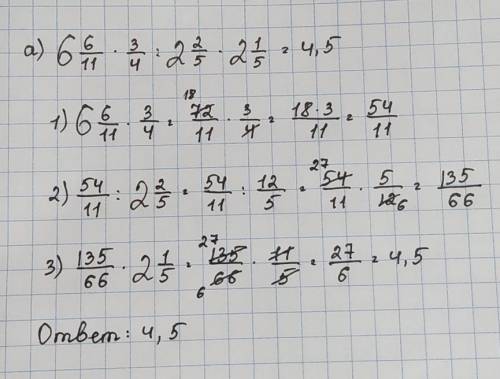 а) 6 6/11 · 3/4 : 2 2/5 · 2 1/5 = 4,5
1) 6 6/11 · 3/4 = 72/11 18 · 3/4 = 18·3/11 = 54/11
2) 54/11 : 2 2/5 = 54/11 : 12/5 = 54/11 27 · 5/12 6 = 135/66
3) 135/66 · 2 1/5 = 135/66 27 6 · 11/5 = 27/6 = 4,5
Ответ: 4,5